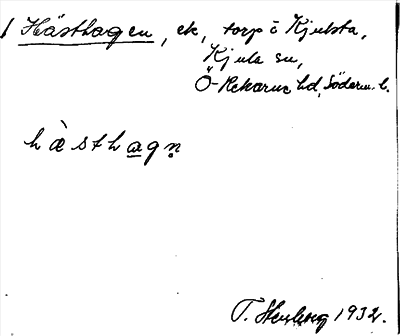 / Hästhagen, ek, torp i Kjulsta,
Kjula sn,
Ö-Rekarne hd, Söderm. l.
hæ̀sthagn̥
T. Stenberg 1932.